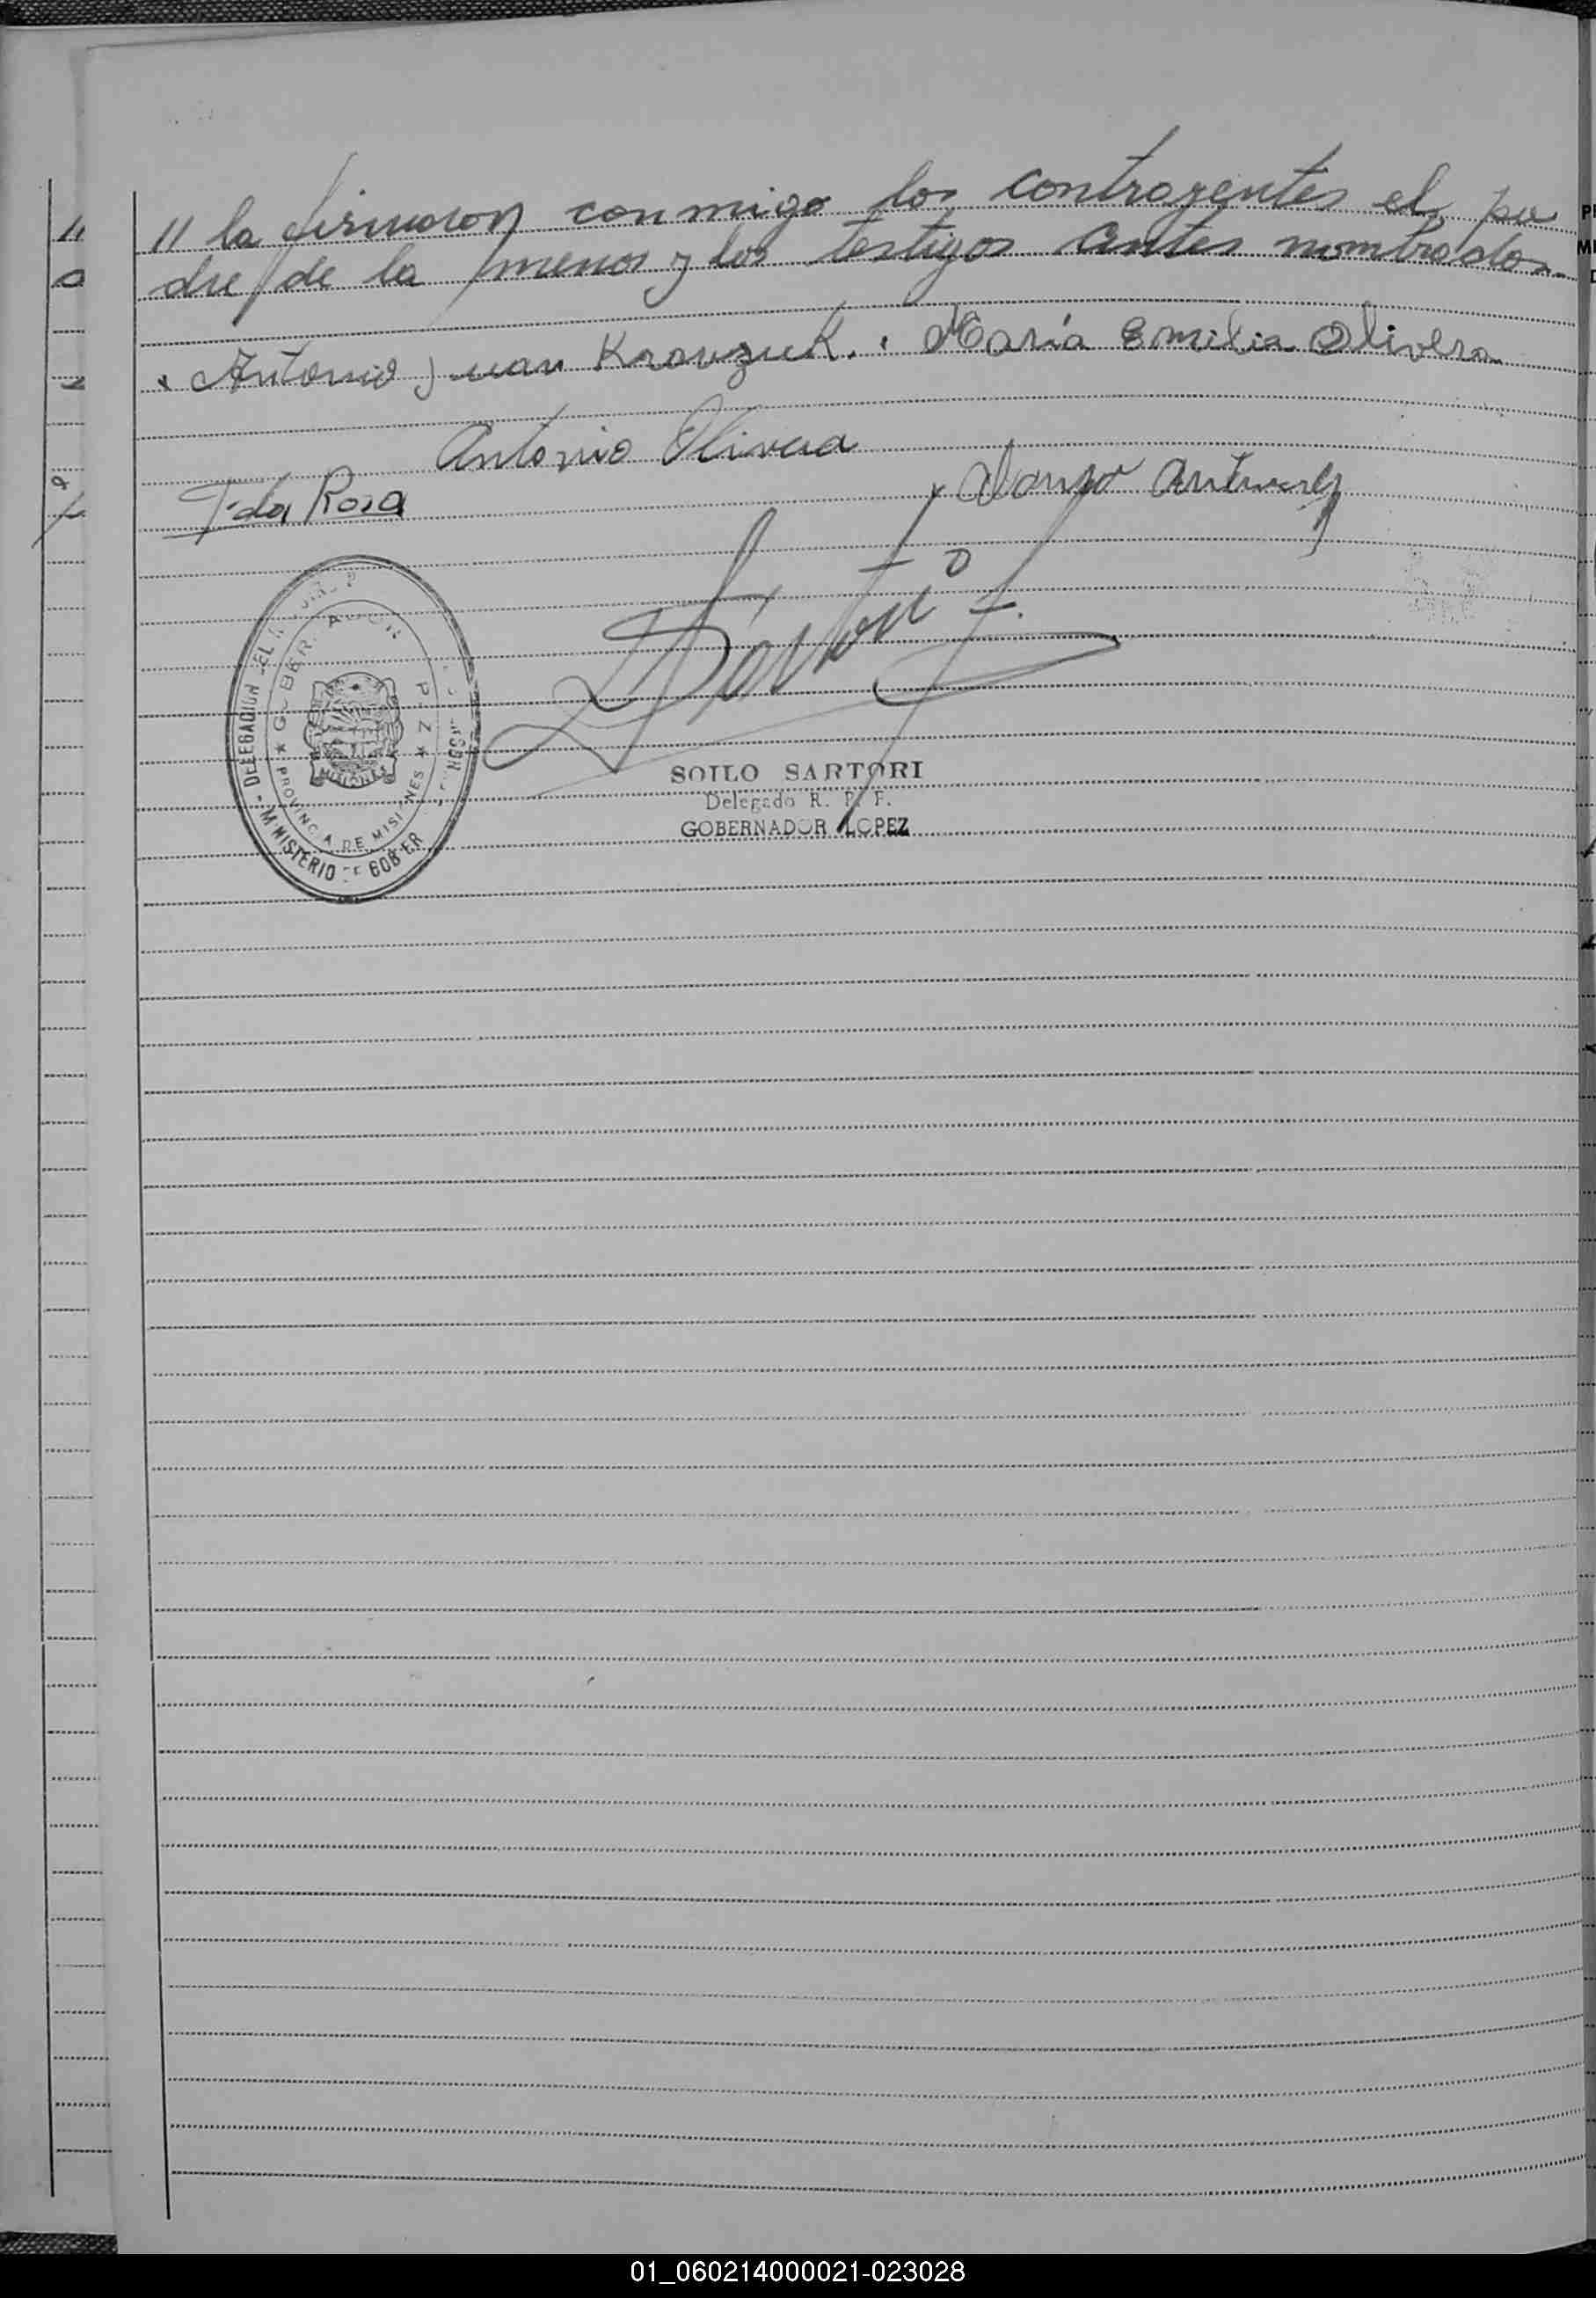 // la firmaron conmigo los contrayentes el pa
dre de la menor y los testigos antes nombrados.
Antonio Juan Krawzuk. María Emilia Olivera
Antonio Olivera
da Rosa
Sartori
SOILO SARTORI
Delegado R. P. F.
GOBERNADOR LOPEZ
PROVINCIA DE MISIONES
MISIONES
MINISTERIO DE GOBER
DELEGACION DEL
01_060214000021-023028